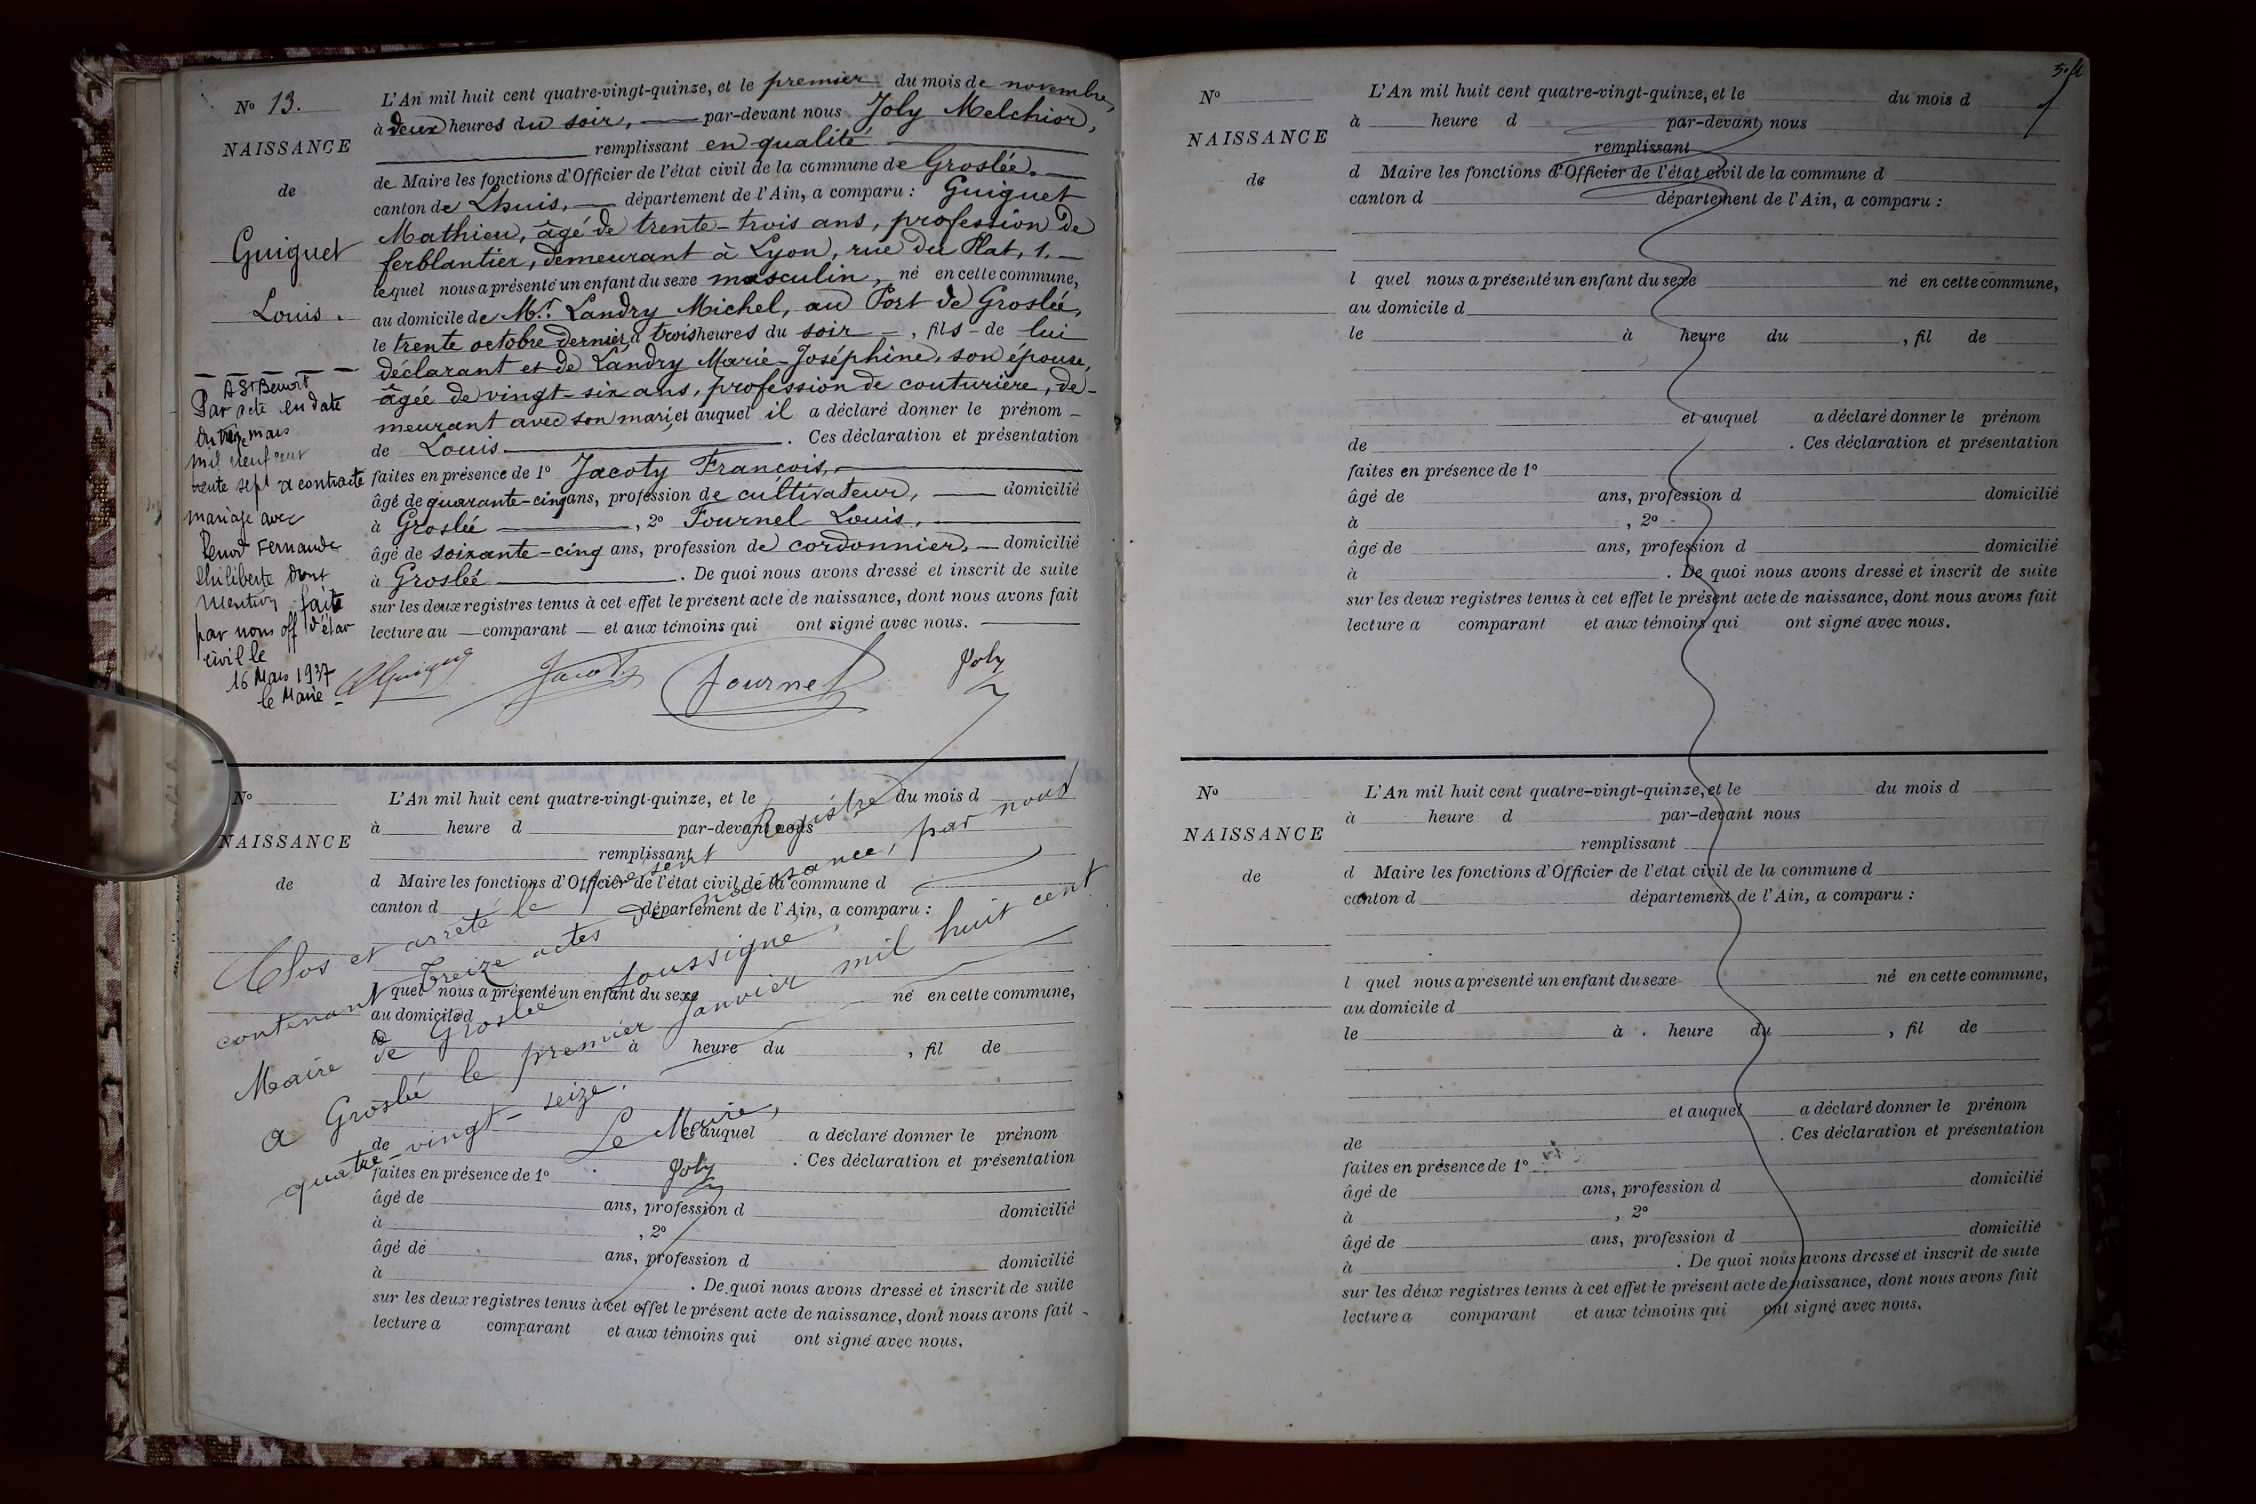 N° 13.
NAISSANCE
de
Guiguet
Louis.
L'An mil huit cent quatre-vingt-quinze, et le premier du mois de novembre,
à deux heures du soir, par-devant nous Joly Melchior,
remplissant en qualité
de Maire les fonctions d'Officier de l'état civil de la commune de Groslée,
canton de Lhuis, département de l'Ain, a comparu : Guiguet
Mathieu, âgé de trente-trois ans, profession de
ferblantier, demeurant à Lyon, rue du Plat, 1.
lequel nous a présenté un enfant du sexe masculin, né en cette commune,
au domicile de Mr. Landry Michel, au Port de Groslée,
le trente octobre dernier, à trois heures du soir, fils de lui
déclarant et de Landry Marie-Joséphine, son épouse,
âgée de vingt-six ans, profession de couturière, de-
meurant avec son mari, et auquel il a déclaré donner le prénom
de Louis. Ces déclaration et présentation
faites en présence de 1° Jacoty François,
âgé de quarante-cinq ans, profession de cultivateur, domicilié
à Groslée, 2° Fournel Louis,
âgé de soixante-cinq ans, profession de cordonnier, domicilié
à Groslée. De quoi nous avons dressé et inscrit de suite
sur les deux registres tenus à cet effet le présent acte de naissance, dont nous avons fait
lecture au comparant et aux témoins qui ont signé avec nous.
A St Benoit
Par acte en date
du mars
mil neuf cent
trente sept a contracté
mariage avec
Fernande
Philiberte dont
mention faite
par nous off d'état
civil le
16 Mars 1937
le Maire
Guiguet Jacoty Fournel Joly
N°
NAISSANCE
de
L'An mil huit cent quatre-vingt-quinze, et le du mois d
à heure d par-devant nous
remplissant
d Maire les fonctions d'Officier de l'état civil de la commune d
canton d département de l'Ain, a comparu :
l quel nous a présenté un enfant du sexe né en cette commune,
au domicile d
le à heure du , fil de
et auquel a déclaré donner le prénom
de . Ces déclaration et présentation
faites en présence de 1°
âgé de ans, profession d domicilié
à , 2°
âgé de ans, profession d domicilié
à . De quoi nous avons dressé et inscrit de suite
sur les deux registres tenus à cet effet le présent acte de naissance, dont nous avons fait
lecture a comparant et aux témoins qui ont signé avec nous.
Clos et arrêté le présent Registre
contenant Treize actes de naissance, par nous
Maire de Groslée soussigné,
A Groslée le premier Janvier mil huit cent
quatre-vingt-seize.
Le Maire,
Joly
N°
NAISSANCE
de
L'An mil huit cent quatre-vingt-quinze, et le du mois d
à heure d par-devant nous
remplissant
d Maire les fonctions d'Officier de l'état civil de la commune d
canton d département de l'Ain, a comparu :
l quel nous a présenté un enfant du sexe né en cette commune,
au domicile d
le à heure du , fil de
et auquel a déclaré donner le prénom
de . Ces déclaration et présentation
faites en présence de 1°
âgé de ans, profession d domicilié
à , 2°
âgé de ans, profession d domicilié
à . De quoi nous avons dressé et inscrit de suite
sur les deux registres tenus à cet effet le présent acte de naissance, dont nous avons fait
lecture a comparant et aux témoins qui ont signé avec nous.
N°
NAISSANCE
de
L'An mil huit cent quatre-vingt-quinze, et le du mois d
à heure d par-devant nous
remplissant
d Maire les fonctions d'Officier de l'état civil de la commune d
canton d département de l'Ain, a comparu :
l quel nous a présenté un enfant du sexe né en cette commune,
au domicile d
le à heure du , fil de
et auquel a déclaré donner le prénom
de . Ces déclaration et présentation
faites en présence de 1°
âgé de ans, profession d domicilié
à , 2°
âgé de ans, profession d domicilié
à . De quoi nous avons dressé et inscrit de suite
sur les deux registres tenus à cet effet le présent acte de naissance, dont nous avons fait
lecture a comparant et aux témoins qui ont signé avec nous.